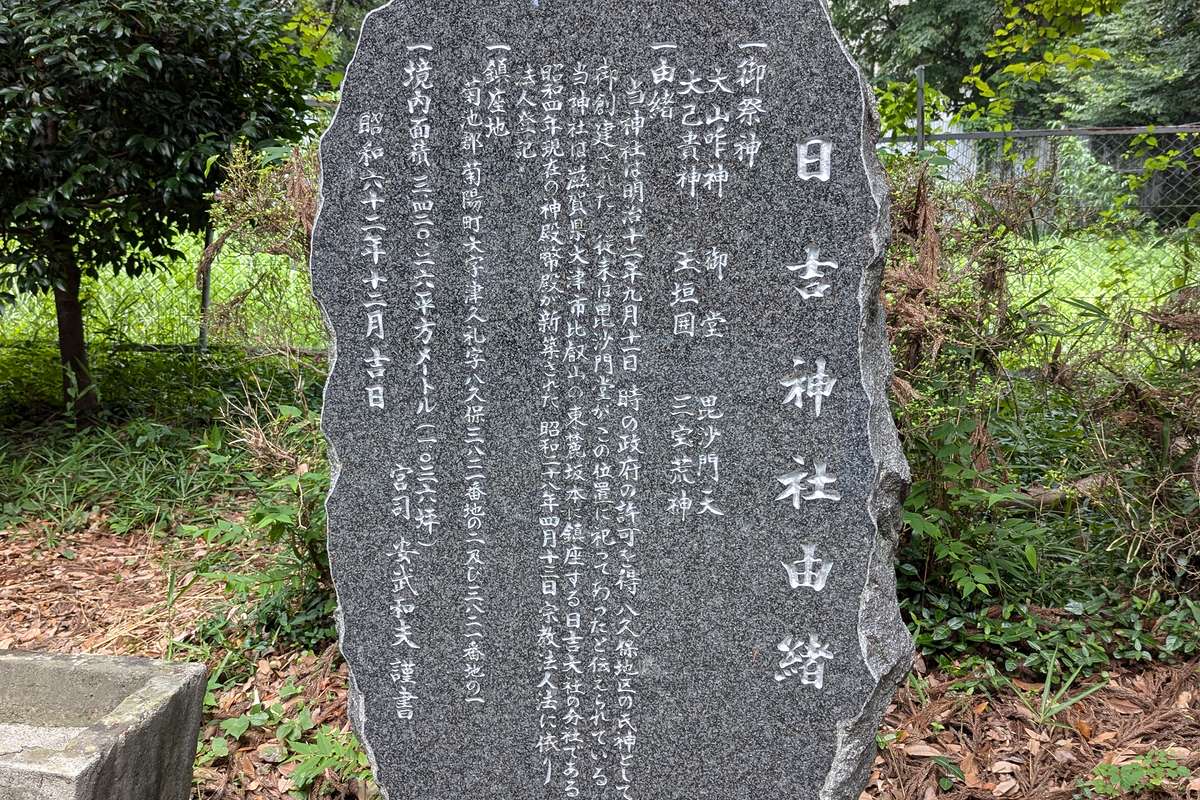 日吉神社由緒
一御祭神
大山咋神 御堂 毘沙門天
大己貴神 玉垣国 三宝荒神
一由緒
当神社は明治十二年九月十一日 時の政府の許可を得 八久保地区の氏神として
御創建された 従来は毘沙門堂がこの位置に祀ってあったと伝えられている
当神社は滋賀県大津市比叡山の東麓坂本に鎮座する日吉大社の分社である
昭和四年現在の神殿幣殿が新築された 昭和二十八年四月十三日 宗教法人法に依り
法人登記
一鎮座地
菊池郡菊陽町大字津久礼字八久保三八二一番地の二及び三八二二番地の一
一境内面積 三四二〇・二六平方メートル(一〇三六坪)
昭和六十二年十二月吉日
宮司 安武和夫 謹書